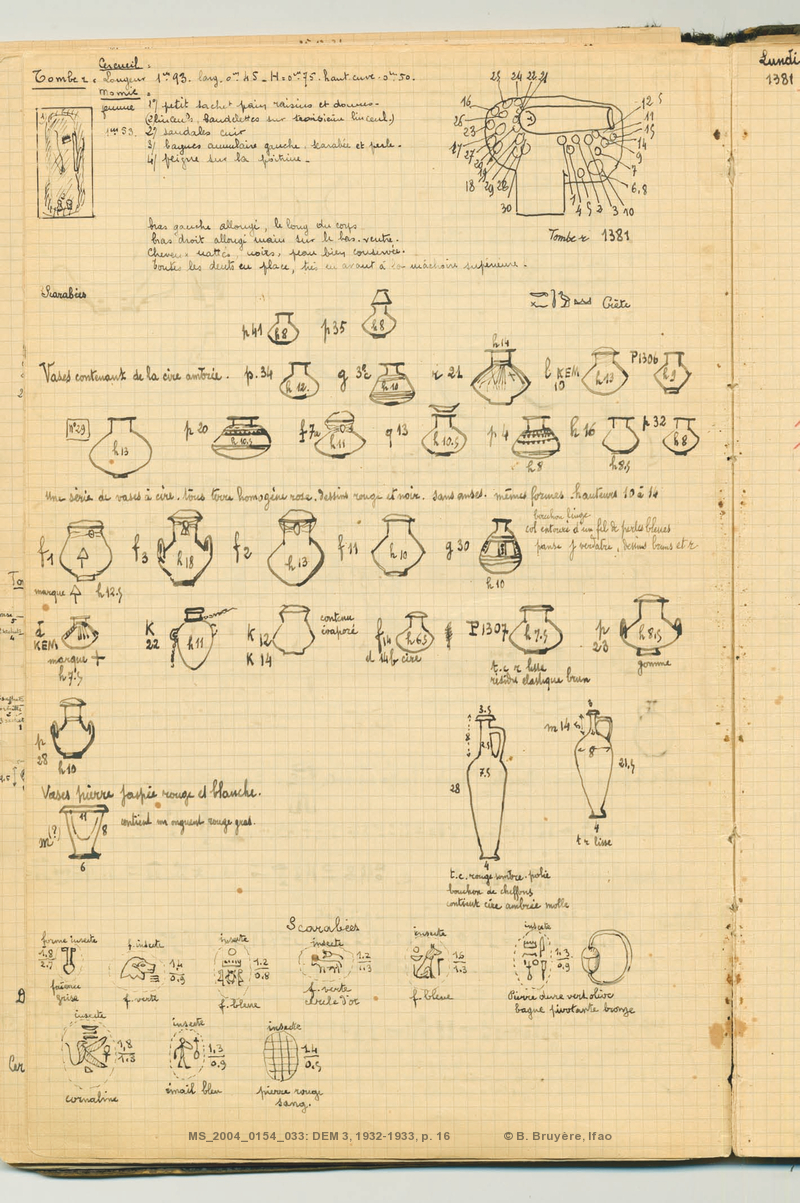 Cercueil :
Tombe r. Longeur 1m93. larg. 0m45 _ H = 0m75. haut. cuve. 0m50.
Momie :
femme
1m53.
1/ petit sachet pain raisins et doum.
(2 linceuls, bandelettes sur troisième linceul.)
2/ sandales cuir
3/ bagues annulaire gauche. scarabée et perle.
4/ peigne sur la poitrine _
25 24 22 21
16
26
23
17
27
18 29 28
30
12 5
11
15
14
9
7
6.8
1 4 5 2 3 10
Tombe r 1381
bras gauche allongé, le long du corps
bras droit allongé main sur le bas-ventre.
Cheveux nattés, noirs, peau bien conservée.
Toutes les dents en place, très en avant à la mâchoire supérieure.
Scarabées
p41 h8 p35 h8
Crète
Vases contenant de la cire ambrée. p.34 h12 g 32 h10 r 21 h14 l KEM 10 h13 P1306 h9
N°29 h13 p 20 h10.5 f7a h11 q 13 h10.5 p 4 h8 h 16 h8.5 p 32 h8
Une série de vases à cire. tous terre homogène rose. dessins rouge et noir. sans anses. mêmes formes. hauteurs 10 à 14
bouchon linge
col entouré d'un fil de perles bleues
panse j verdâtre, dessins bruns et r
f1 f3 h18 f2 h13 f11 h10 g 30 h10
marque h12.5
KEM
marque +
h 7.5
K 22 h11
K 12
K 14
contenu évaporé
f14 h6.5
et 14b cire
P1307 h7.5
t.c. r lisse
résidu élastique brun
p 23 h8.5
gomme
p 28
h10
3.5 7.5 28 4
m 14 3 8 21,5 4
t r lisse
Vases pierre jaspée rouge et blanche.
m(?) 11 8 6
contient un onguent rouge gras.
t.c. rouge sombre. polie
bouchon de chiffons
contient cire ambrée molle
Scarabées
forme insecte
faïence grise
f. insecte
f. verte
insecte
1.2
0.8
f. bleue
insecte
1.2
f. verte
cercle d'or
insecte
f bleue
insecte
1.3
0.9
Pierre dure vert olive
bague pivotante bronze
insecte
1,8
1.3
cornaline
insecte
1.3
0.9
émail bleu
insecte
1.4
pierre rouge
sang.
Lundi
1381
MS_2004_0154_033: DEM 3, 1932-1933, p. 16 © B. Bruyère, Ifao